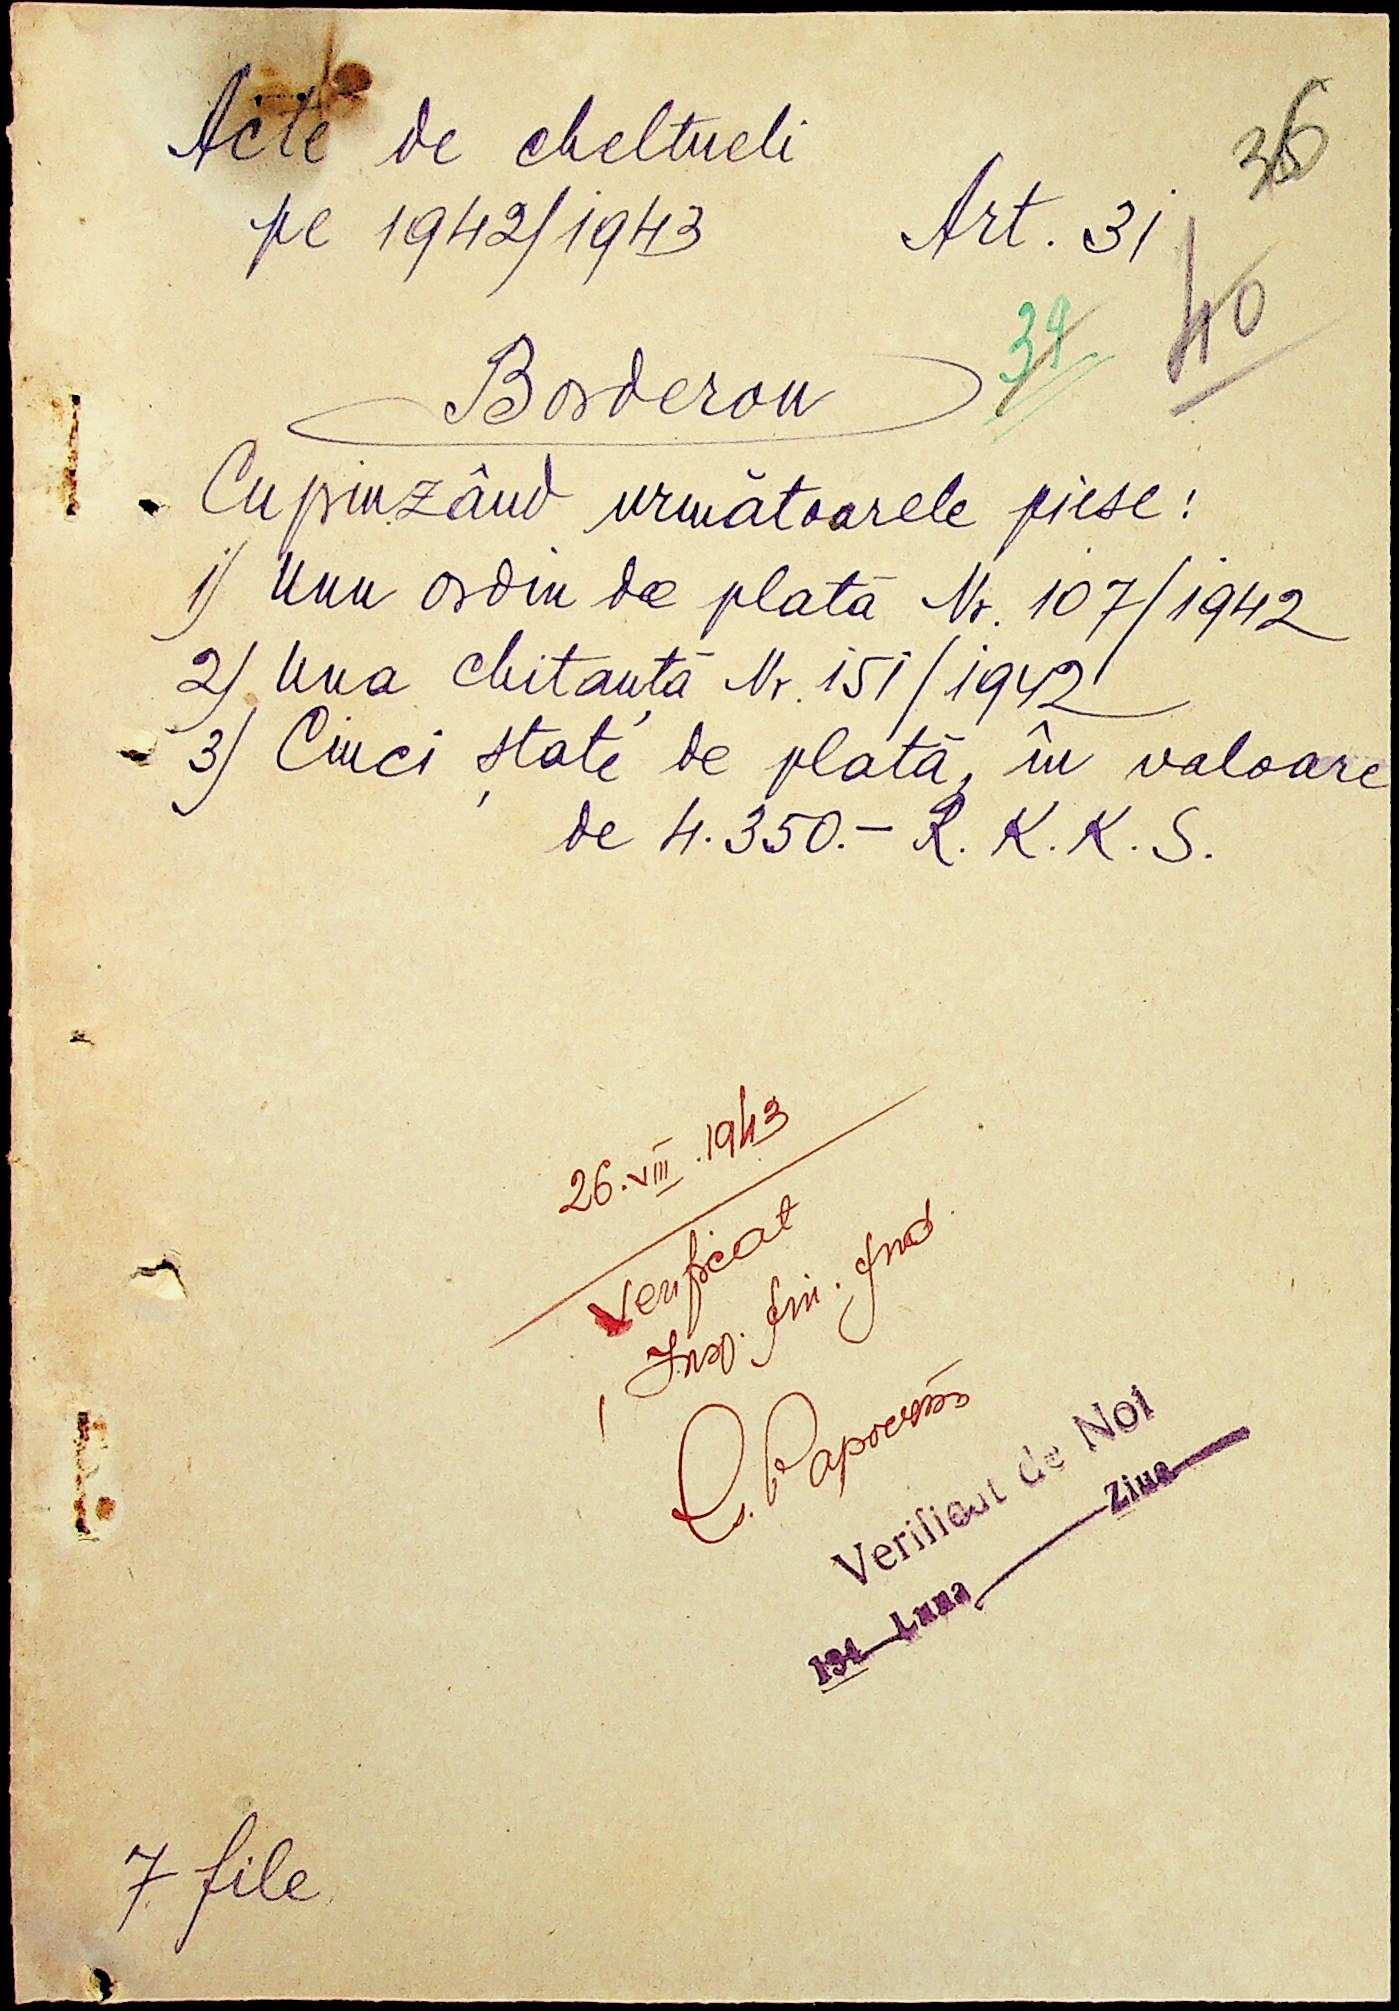 Acte de cheltueli
36
pe 1942/1943 Art. 31
39 40
Borderou
Cuprinzând următoarele piese:
1) Unu ordin de plată Nr. 107/1942
2) Una chitanță Nr. 151/1942
3) Cinci state de plată, în valoare
de 4.350.- R. K. K. S.
26.VIII.1943
Verificat
Insp. fin.
Verificat de Noi
194 Luna Ziua
7 file